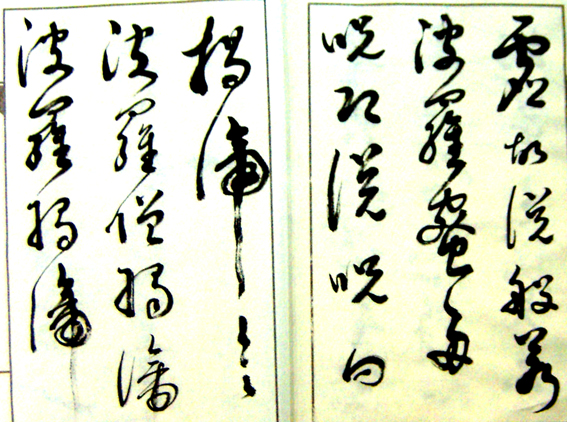 虛故説般若
波羅蜜多
呪即説呪曰
揭諦〻〻
波羅僧揭諦
波羅揭諦